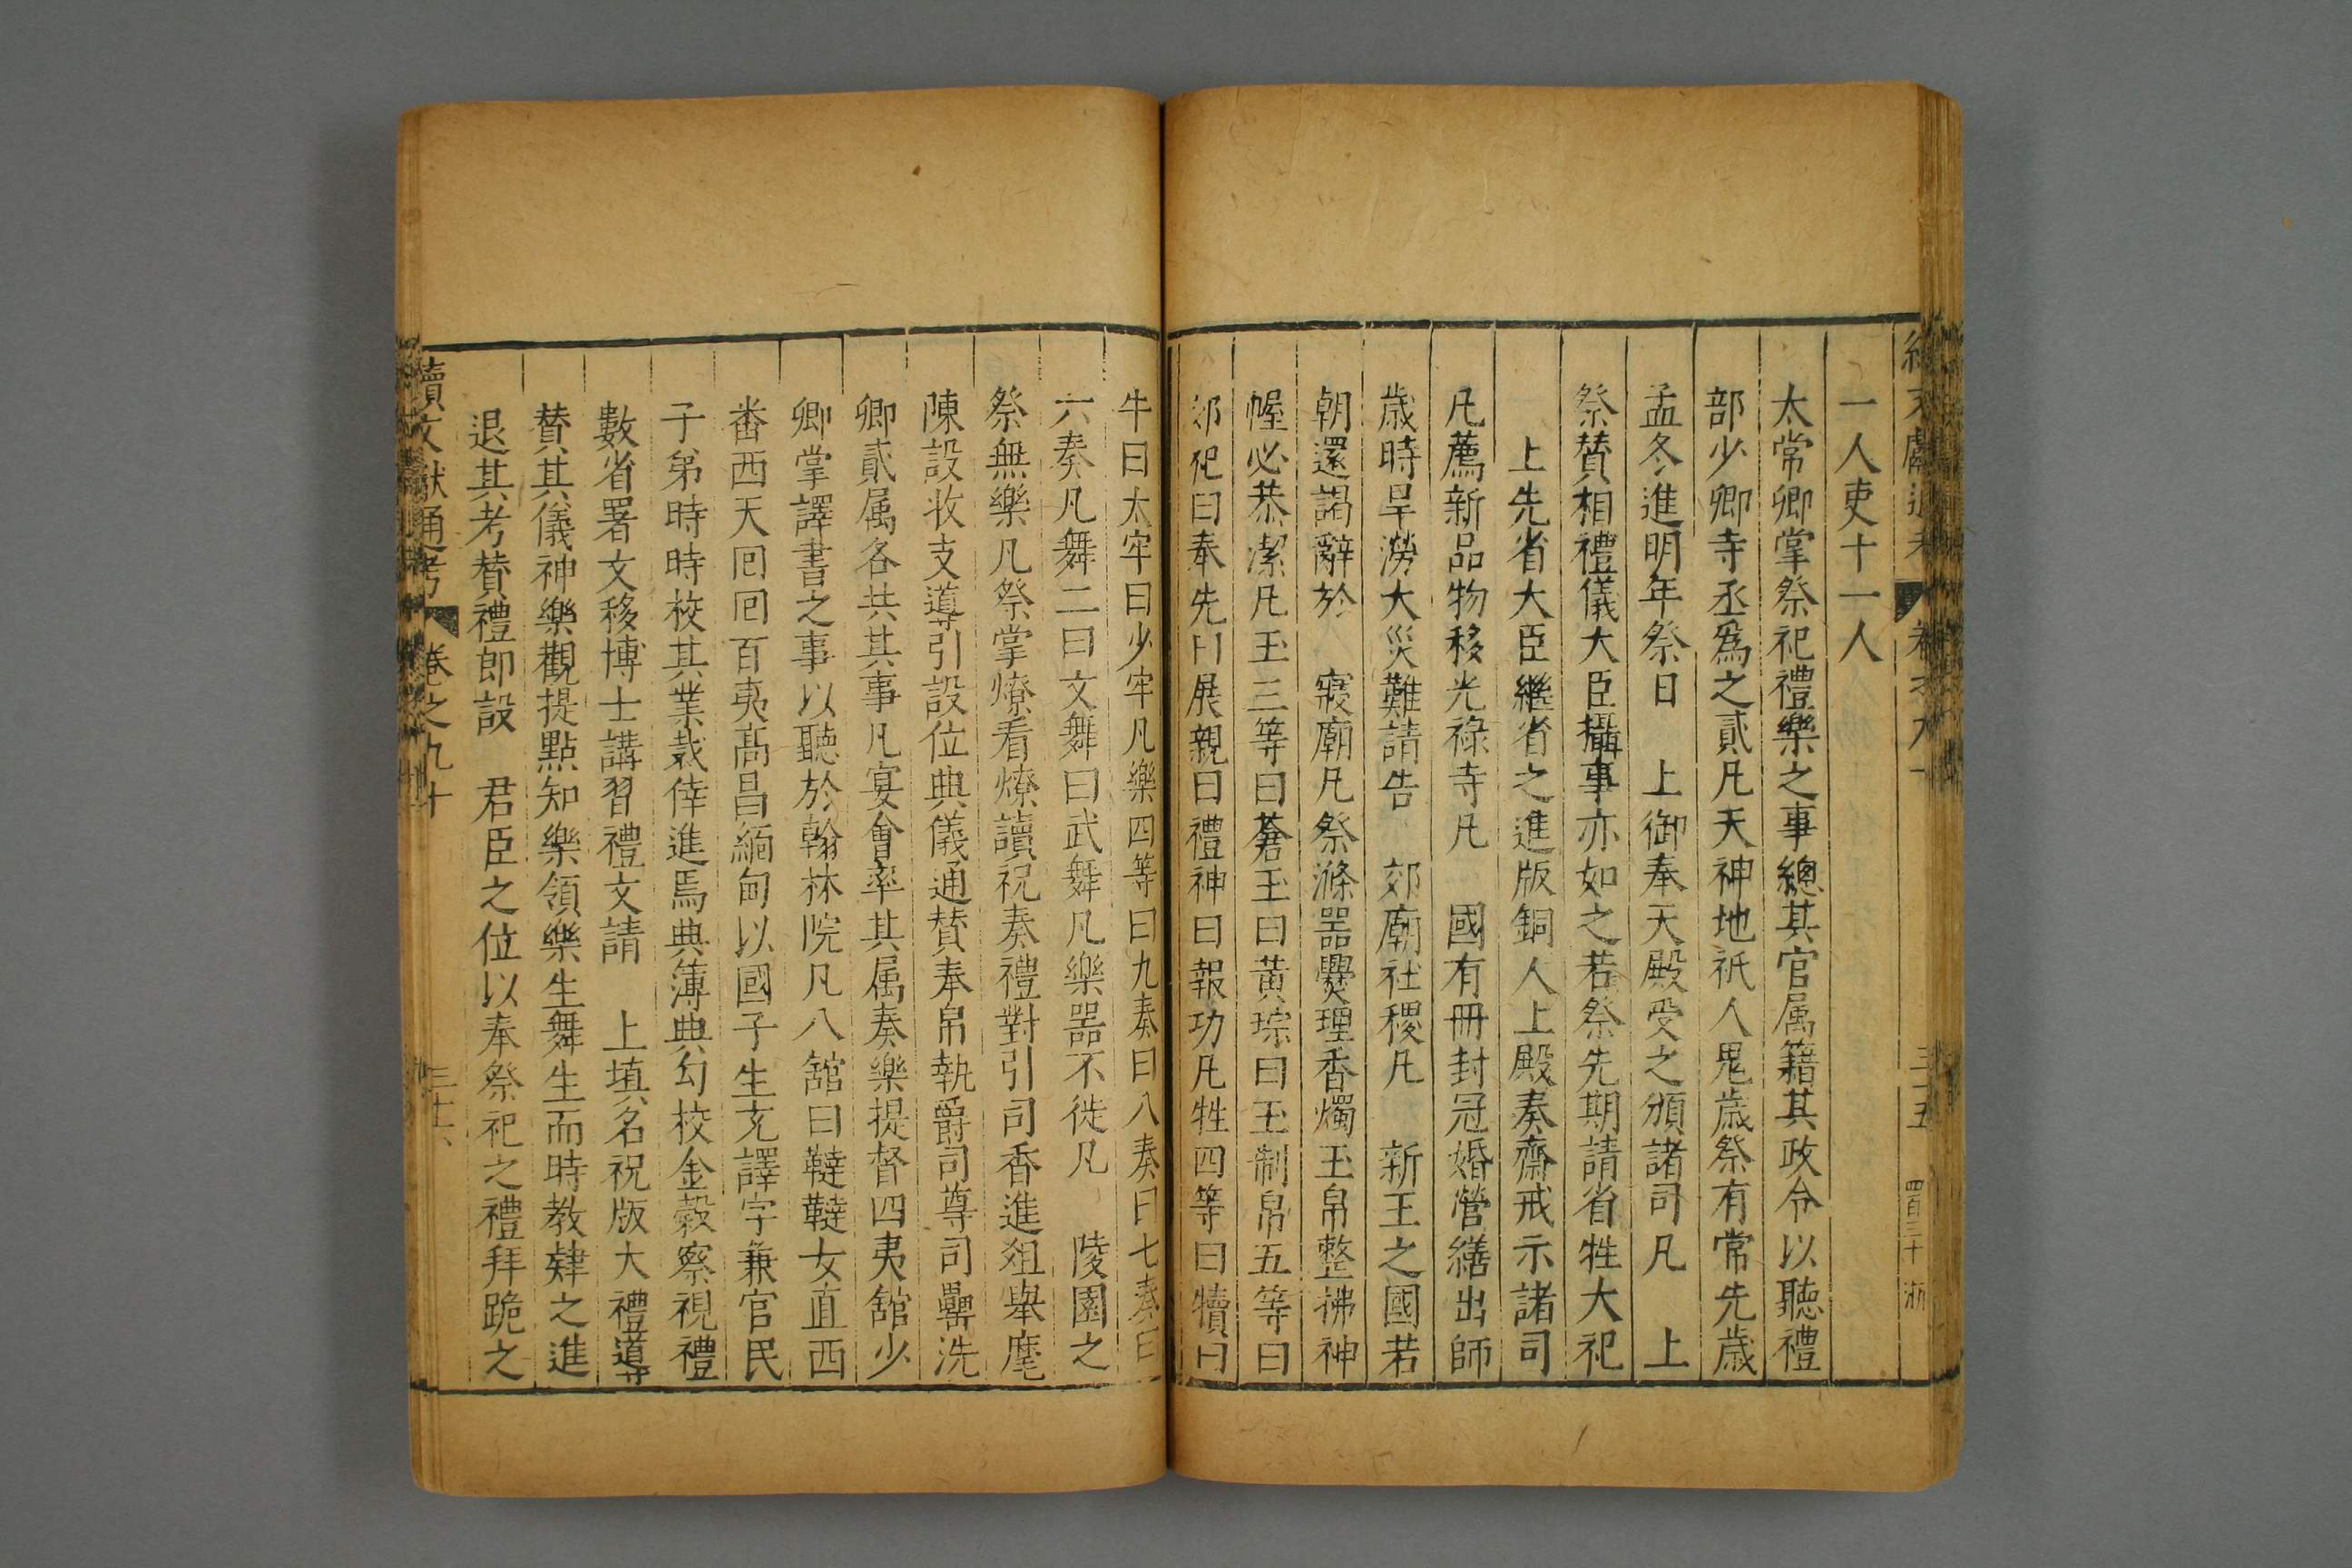 一人吏十一人
太常卿掌祭祀禮樂之事總其官属籍其政令以聽禮
部少卿寺丞爲之貳凡天神地祇人鬼歲祭有常先歲
孟冬進明年祭日 上御奉天殿受之頒諸司凡 上
祭贊相禮儀大臣攝事亦如之若祭先期請省牲大祀
上先省大臣繼省之進版銅人上殿奏齋戒示諸司
凡薦新品物移光祿寺凡 國有冊封冠婚營繕出師
歲時旱澇大災難請告 郊廟社稷凡 新王之國若
朝還謁辭於 寢廟凡祭滌器爨理香燭玉帛整拂神
幄必恭潔凡玉三等曰蒼玉曰黃琮曰玉制帛五等曰
郊祀曰奉先曰展親曰禮神曰報功凡牲四等曰犢曰
牛曰太牢曰少牢凡樂四等曰九奏曰八奏曰七奏曰
六奏凡舞二曰文舞曰武舞凡樂器不徙凡 陵園之
祭無樂凡祭掌燎看燎讀祝奏禮對引司香進俎舉麾
陳設收支導引設位典儀通贊奉帛執爵司尊司罍洗
卿貳属各共其事凡宴會率其属奏樂提督四夷舘少
卿掌譯書之事以聽於翰林院凡八舘曰韃韃女直西
畨西天囘囘百夷髙昌緬甸以國子生充譯字兼官民
子弟時時校其業裁倖進焉典簿典勾校金穀察視禮
數省署文移博士講習禮文請 上填名祝版大禮導
贊其儀神樂觀提點知樂領樂生舞生而時教肄之進
退其考贊禮郎設 君臣之位以奉祭祀之禮拜跪之
續文獻通考 卷之九十 三十六